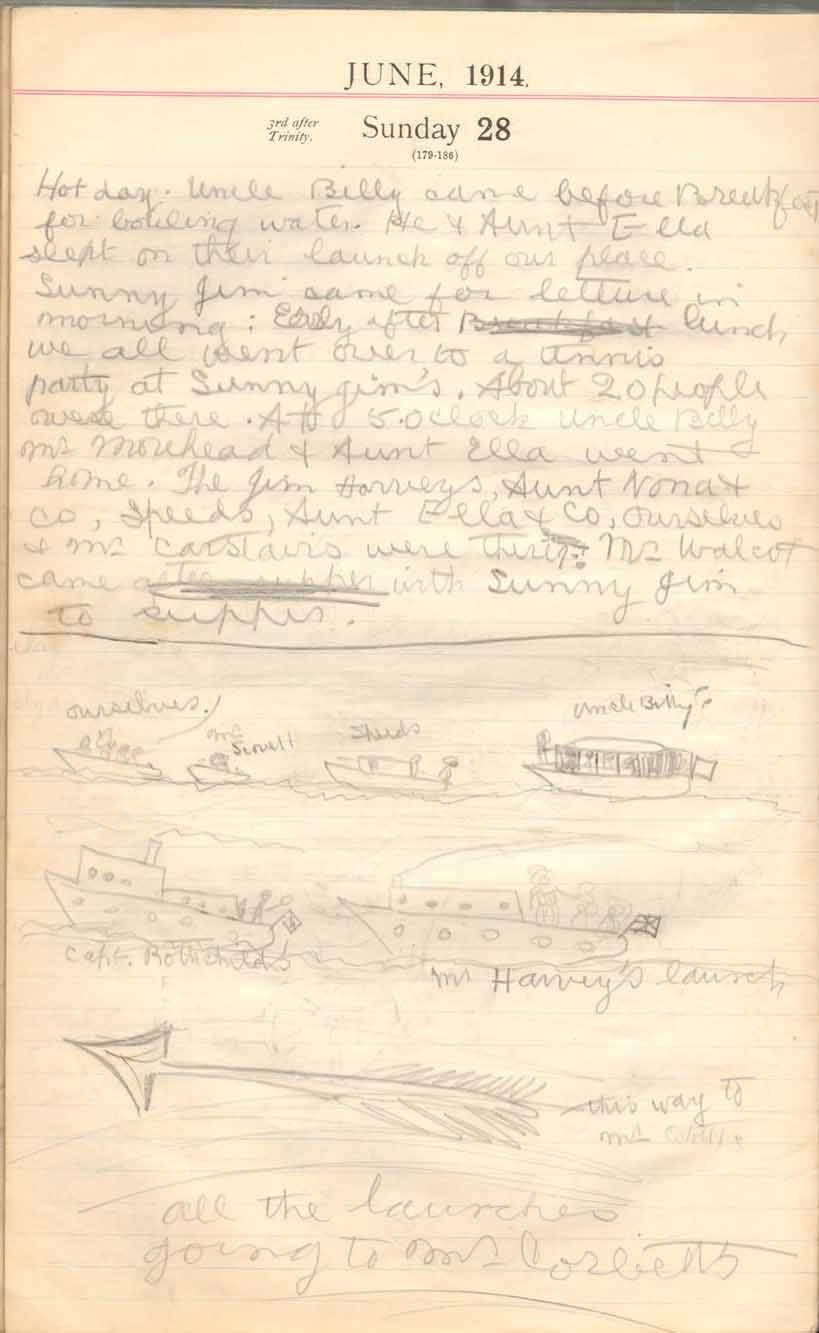 JUNE, 1914.
3rd after
Trinity.
Sunday 28
(179-186)
Hot day. Uncle Billy came before Breakfast
for boiling water. He & Aunt Ella
slept on their launch off our place.
Sunny Jim came for lettuce in
morning: Early after Breakfast lunch
we all went over to a tennis
party at Sunny Jim's. About 20 people
were there. At 5.oclock Uncle Billy
Mr Morehead & Aunt Ella went
home. The Jim Harveys, Aunt Nona &
Co, Speeds, Aunt Ella & Co, ourselves
& Mr Carstairs were there. Mr Walcot
came after supper with Sunny Jim
to supper.
ourselves.
Mr
Speeds
Uncle Billy's
Capt. Rothchild's
Mr Harvey's launch
this way to
Mr
all the launches
going to Mr Corbetts